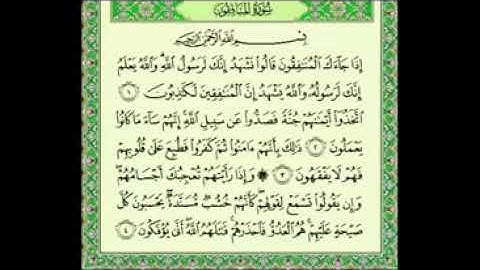 سُورَةُ المُنَافِقُونَ
بِسْمِ اللَّهِ الرَّحْمَٰنِ الرَّحِيمِ
إِذَا جَآءَكَ الْمُنَٰفِقُونَ قَالُوا۟ نَشْهَدُ إِنَّكَ لَرَسُولُ اللَّهِ ۗ وَاللَّهُ يَعْلَمُ
إِنَّكَ لَرَسُولُهُۥ وَاللَّهُ يَشْهَدُ إِنَّ الْمُنَٰفِقِينَ لَكَٰذِبُونَ ١
اتَّخَذُوٓا۟ أَيْمَٰنَهُمْ جُنَّةً فَصَدُّوا۟ عَن سَبِيلِ اللَّهِ ۚ إِنَّهُمْ سَآءَ مَا كَانُوا۟
يَعْمَلُونَ ٢ ذَٰلِكَ بِأَنَّهُمْ ءَامَنُوا۟ ثُمَّ كَفَرُوا۟ فَطُبِعَ عَلَىٰ قُلُوبِهِمْ
فَهُمْ لَا يَفْقَهُونَ ٣ ۞ وَإِذَا رَأَيْتَهُمْ تُعْجِبُكَ أَجْسَامُهُمْ ۖ
وَإِن يَقُولُوا۟ تَسْمَعْ لِقَوْلِهِمْ ۖ كَأَنَّهُمْ خُشُبٌ مُّسَنَّدَةٌ ۖ يَحْسَبُونَ كُلَّ
صَيْحَةٍ عَلَيْهِمْ ۚ هُمُ الْعَدُوُّ فَاحْذَرْهُمْ ۚ قَٰتَلَهُمُ اللَّهُ ۖ أَنَّىٰ يُؤْفَكُونَ ٤